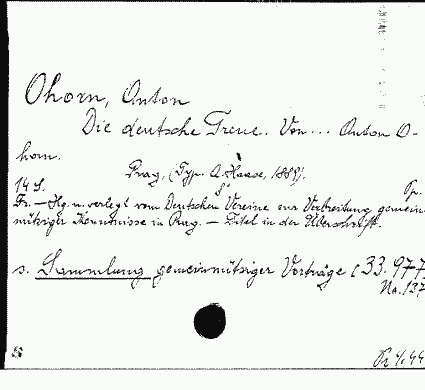 Ohorn, Anton
Die deutsche Treue. Von... Anton O-
horn.
Prag, (Typ. A. Haase, 1889).
14 S. 8° Pp.
Fr. — Hg. u. verlegt vom Deutschen Vereine zur Verbreitung gemein-
nütziger Kenntnisse in Prag. — Titel in der Überschrift.
s. Sammlung gemeinnütziger Vorträge (33.977
No. 137